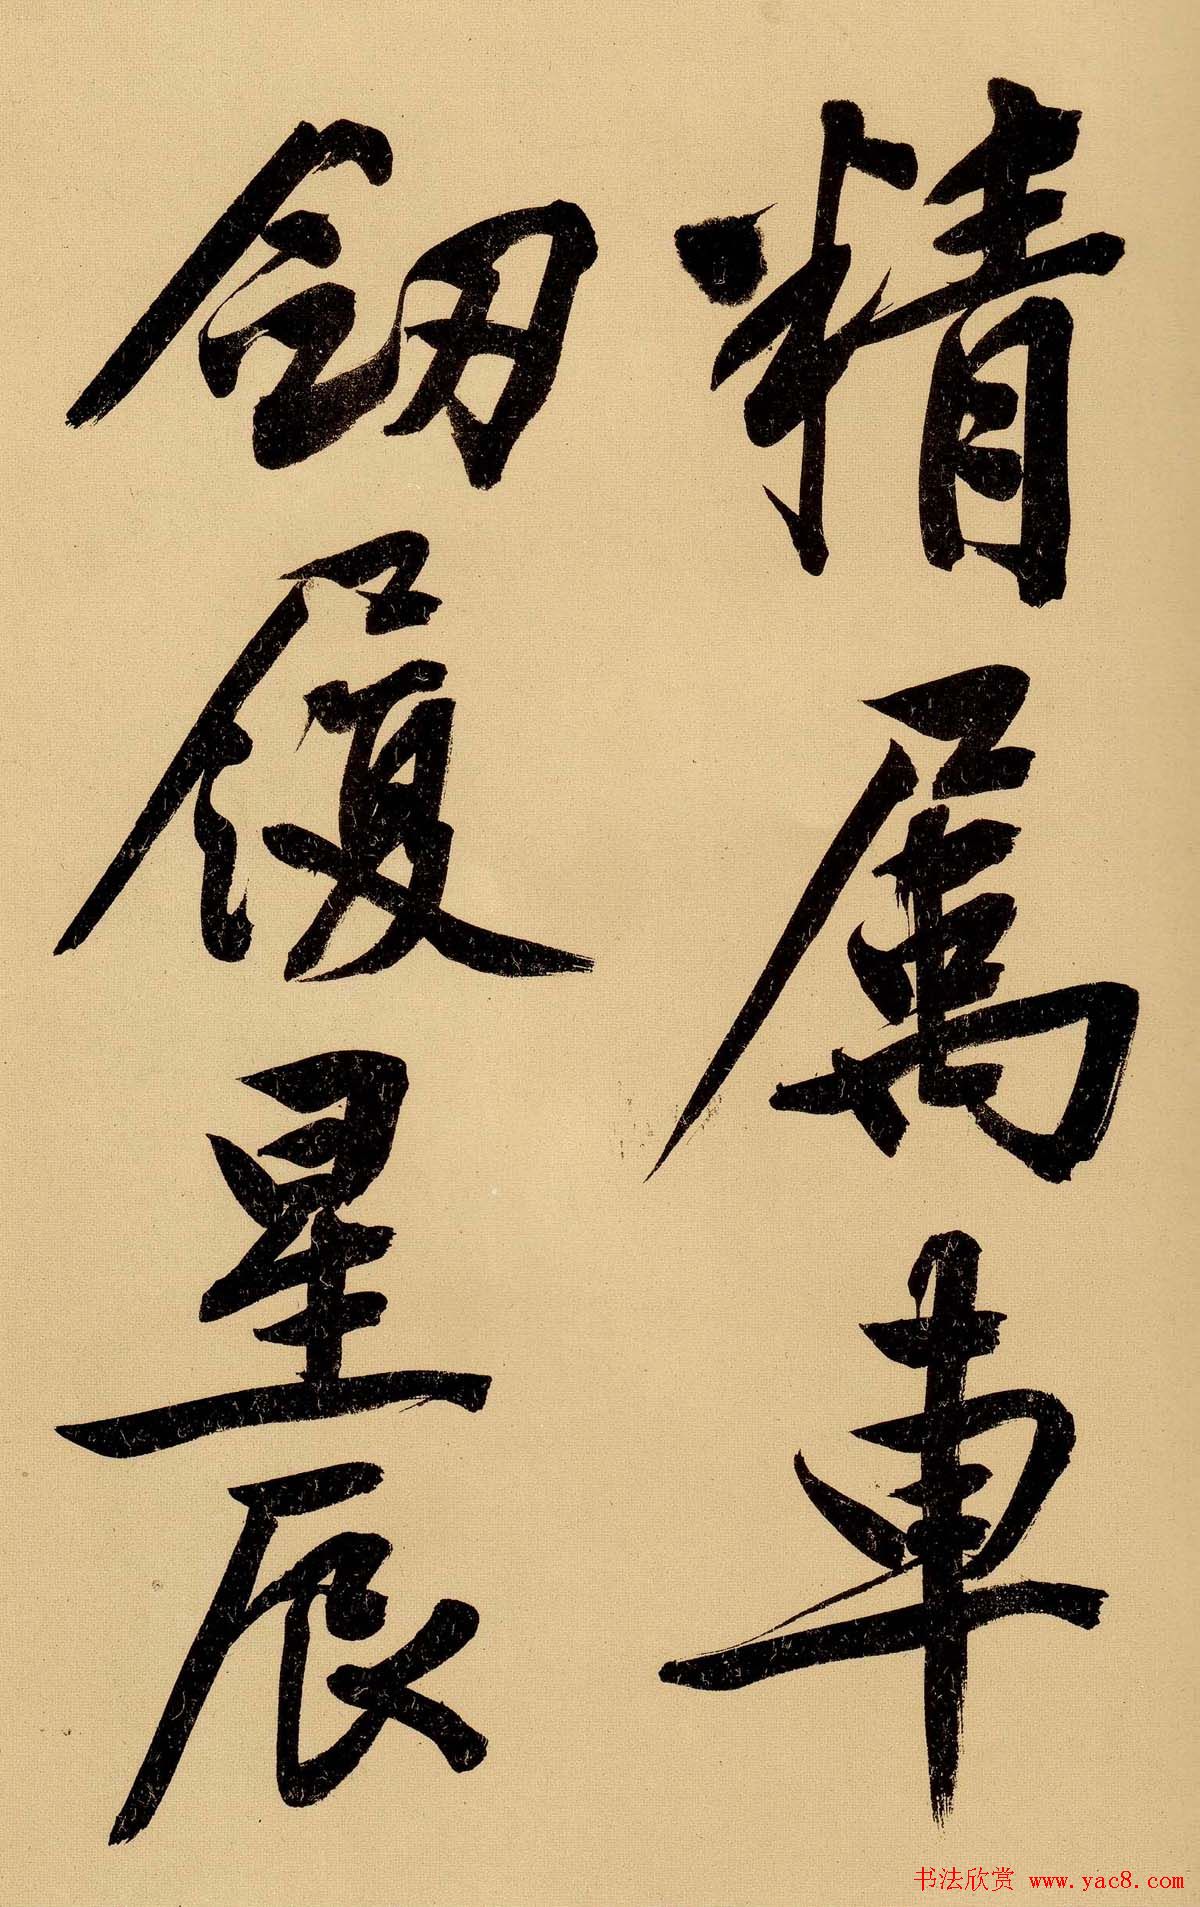 精属車
劒履星辰
书法欣赏 www.yac8.com